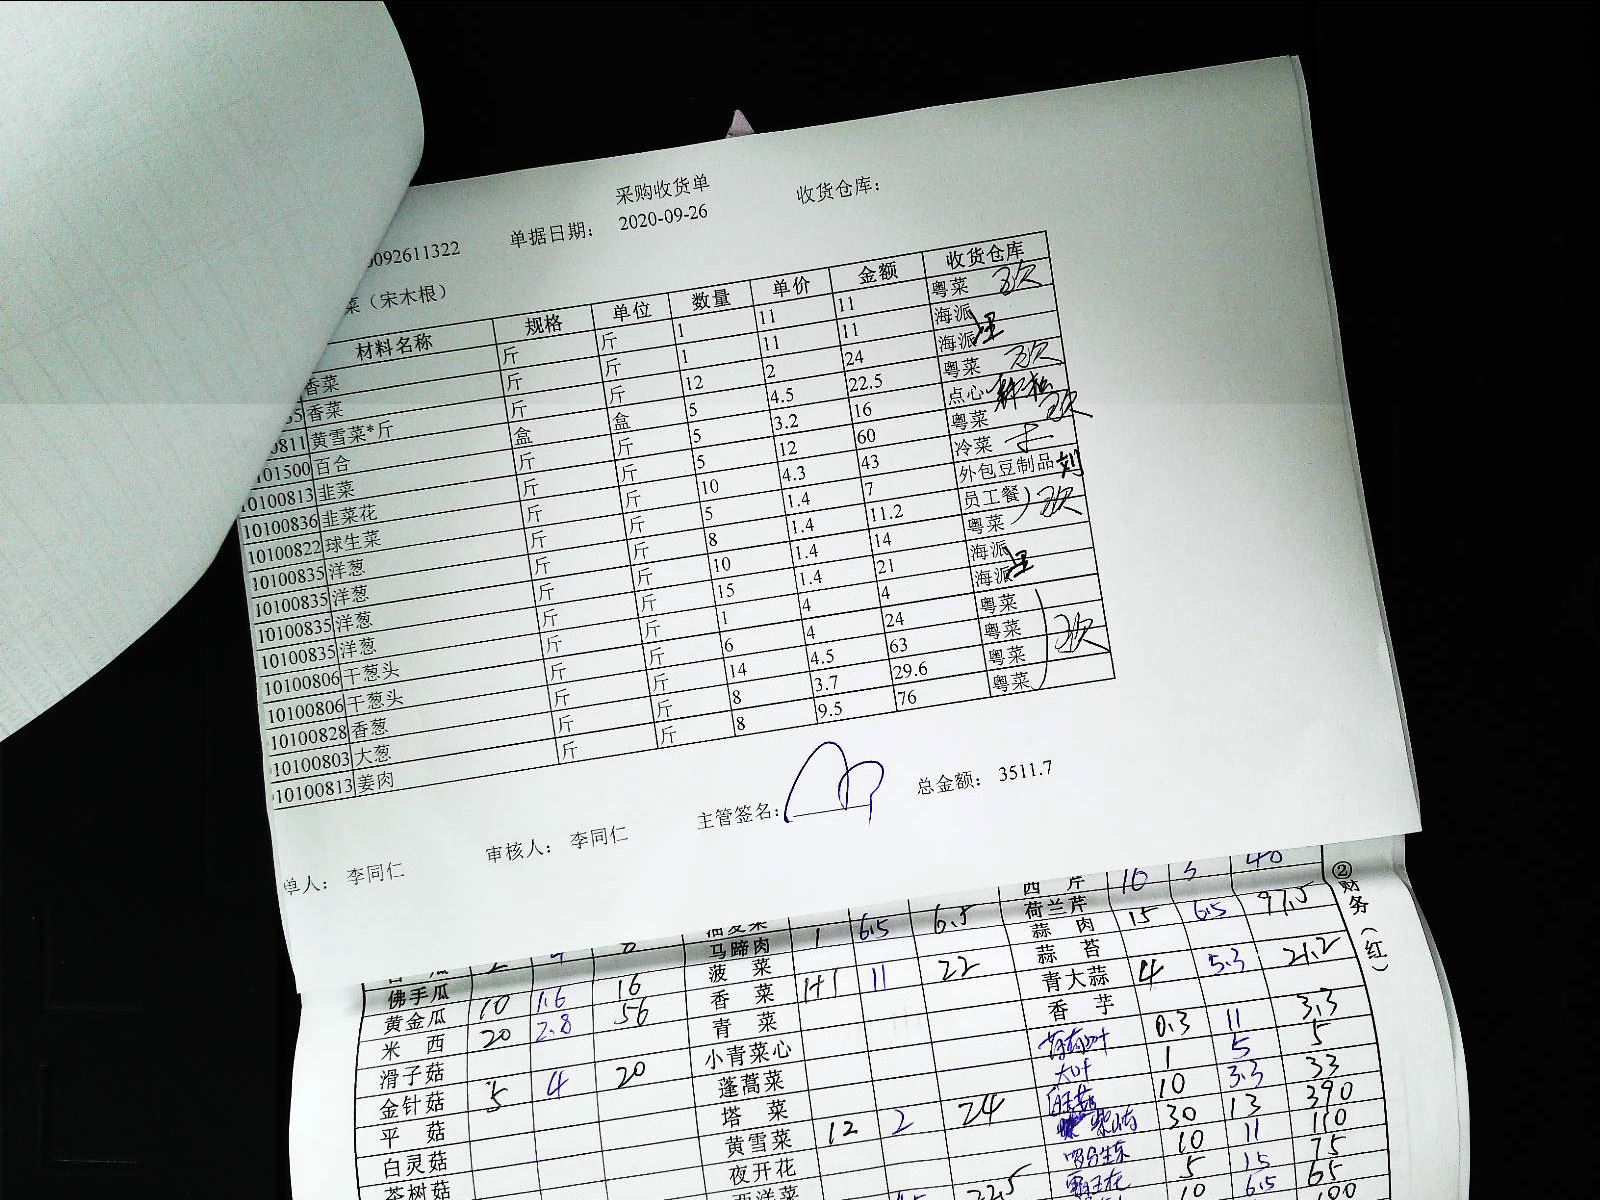 采购收货单
0092611322 单据日期： 2020-09-26 收货仓库：
菜（宋木根）
材料名称 规格 单位 数量 单价 金额 收货仓库
香菜 斤 斤 1 11 11 粤菜
35 香菜 斤 斤 1 11 11 海派
0811 黄雪菜*斤 斤 斤 12 2 24 海派
101500 百合 盒 盒 5 4.5 22.5 粤菜
10100813 韭菜 斤 斤 5 3.2 16 点心
10100836 韭菜花 斤 斤 5 12 60 粤菜
10100822 球生菜 斤 斤 10 4.3 43 冷菜
10100835 洋葱 斤 斤 5 1.4 7 外包豆制品 刘
10100835 洋葱 斤 斤 8 1.4 11.2 员工餐
10100835 洋葱 斤 斤 10 1.4 14 粤菜
10100835 洋葱 斤 斤 15 1.4 21 海派
10100806 干葱头 斤 斤 1 4 4 海派
10100806 干葱头 斤 斤 6 4 24 粤菜
10100828 香葱 斤 斤 14 4.5 63 粤菜
10100803 大葱 斤 斤 8 3.7 29.6 粤菜
10100813 姜肉 斤 斤 8 9.5 76 粤菜
单人： 李同仁 审核人： 李同仁 主管签名： 总金额： 3511.7
西芹 10
荷兰芹
马蹄肉 1 6.5 6.5 蒜肉 15 6.5 97.5
佛手瓜 菠菜 蒜苔
黄金瓜 10 1.6 16 香菜 1+1 11 22 青大蒜 4 5.3 21.2
米西 20 2.8 56 青菜 香芋
滑子菇 小青菜心 0.3 11 3.3
金针菇 5 4 20 蓬蒿菜 大叶 1 5 5
平菇 塔菜 10 3.3 33
白灵菇 黄雪菜 12 2 24 30 13 390
茶树菇 夜开花 10 11 110
西洋菜 22.5 5 15 75
10 6.5 65
②财务（红）